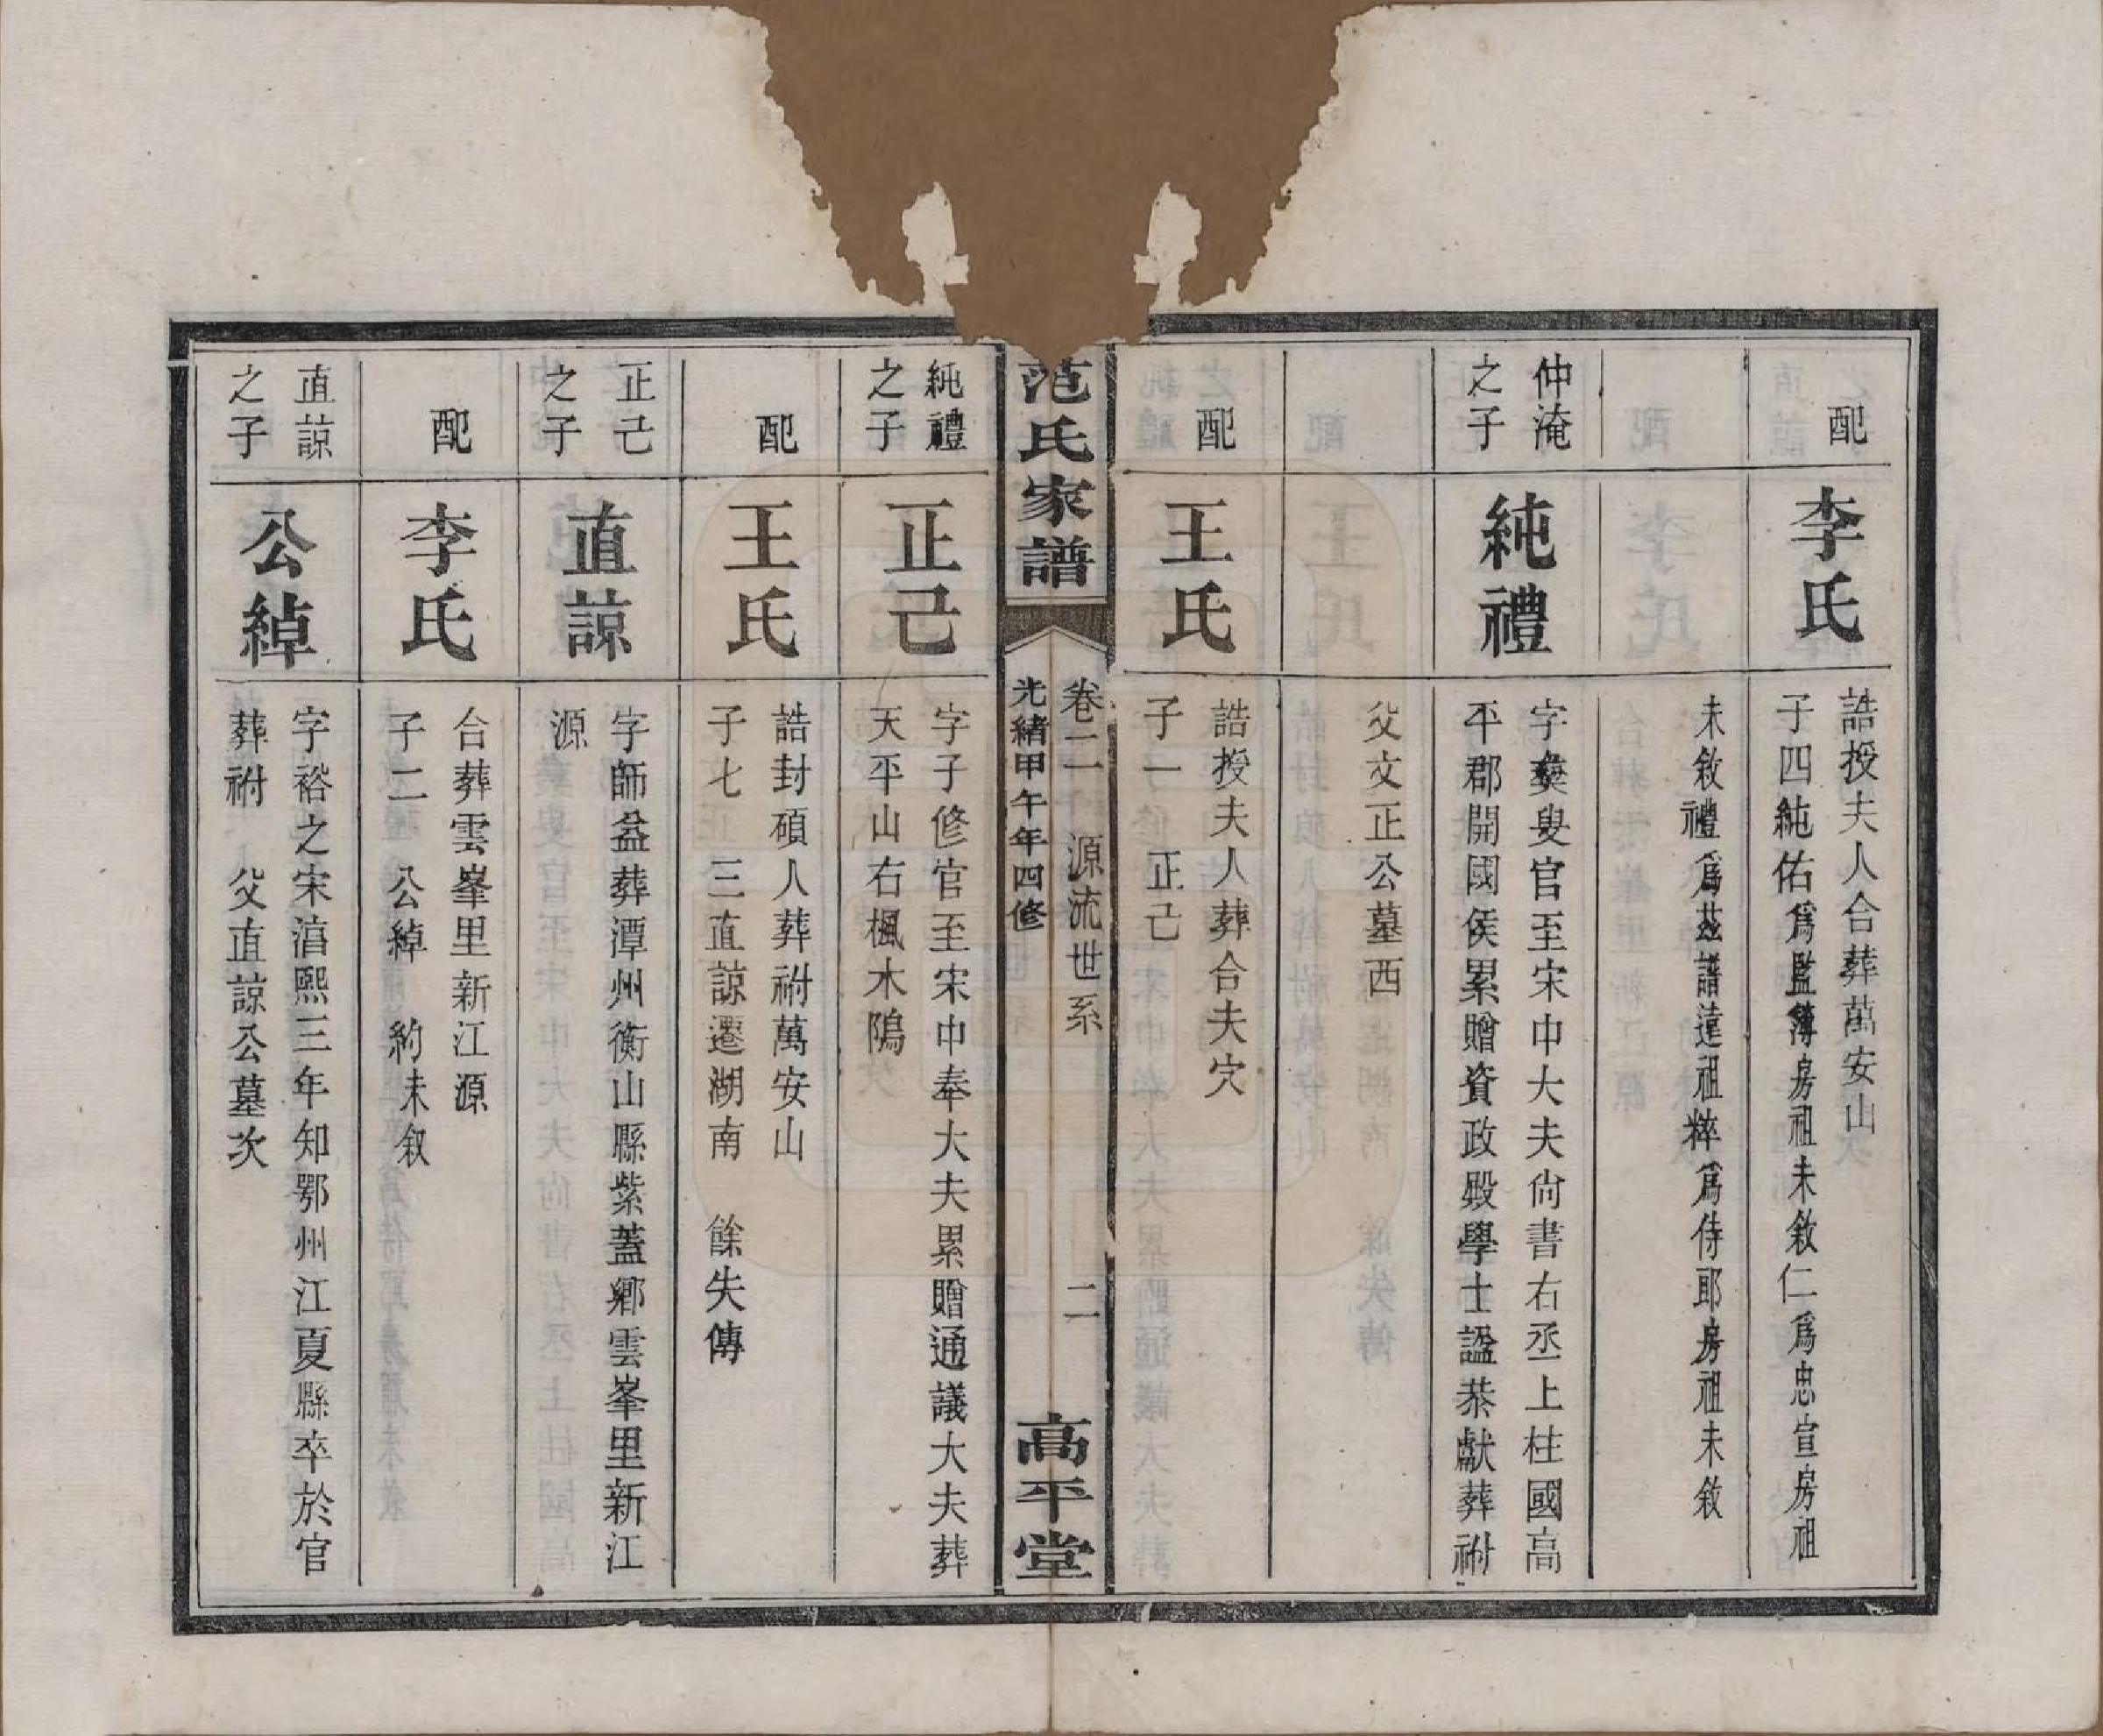 配
李氏
誥授夫人合葬萬安山
子四純佑爲監簿房祖未敘仁爲忠宣房祖
未敘禮爲茲譜遠祖粹爲侍郎房祖未敘
仲淹
之子
純禮
字彝叟官至宋中大夫尙書右丞上柱國高
平郡開國侯累贈資政殿學士諡恭獻葬祔
父文正公墓西
配
王氏
誥授夫人葬合夫穴
子一　正己
范氏家譜
卷二　源流世系　二
光緒甲午年四修
高平堂
純禮
之子
正己
字子修官至宋中奉大夫累贈通議大夫葬
天平山右楓木隖
配
王氏
誥封碩人葬祔萬安山
子七　三直諒遷湖南　餘失傳
正己
之子
直諒
字師益葬潭州衡山縣紫蓋鄉雲峯里新江
源
配
李氏
合葬雲峯里新江源
子二　公綽　約未叙
直諒
之子
公綽
字裕之宋淯熙三年知鄂州江夏縣卒於官
葬祔　父直諒公墓次